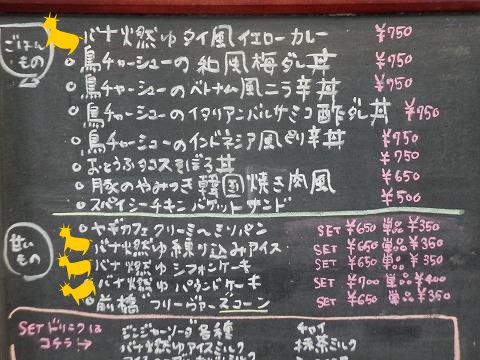 ごはんもの
バナ燃ゆタイ風イエローカレー ¥750
鳥チャーシューの和風梅ダレ丼 ¥750
鳥チャーシューのベトナム風ニラ辛丼 ¥750
鳥チャーシューのイタリアンバルサミコ酢ダレ丼 ¥750
鳥チャーシューのインドネシア風ピリ辛丼 ¥750
おとうふタコスそぼろ丼 ¥750
豚のやみつき韓国焼き肉風 ¥650
スパイシーチキンバケットサンド ¥500
甘いもの
ヤギカフェクリーミィミソパン SET ¥650 単品 ¥350
バナ燃ゆ練り込みアイス SET ¥650 単品 ¥350
バナ燃ゆシフォンケーキ SET ¥650 単品 ¥350
バナ燃ゆパウンドケーキ SET ¥700 単品 ¥400
前橋フリーヴァースコーン SET ¥650 単品 ¥350
SETドリンクは ジンジャーソーダ各種 チャイ
コチラ→ バナ燃ゆアイスミルク 抹茶ミルク